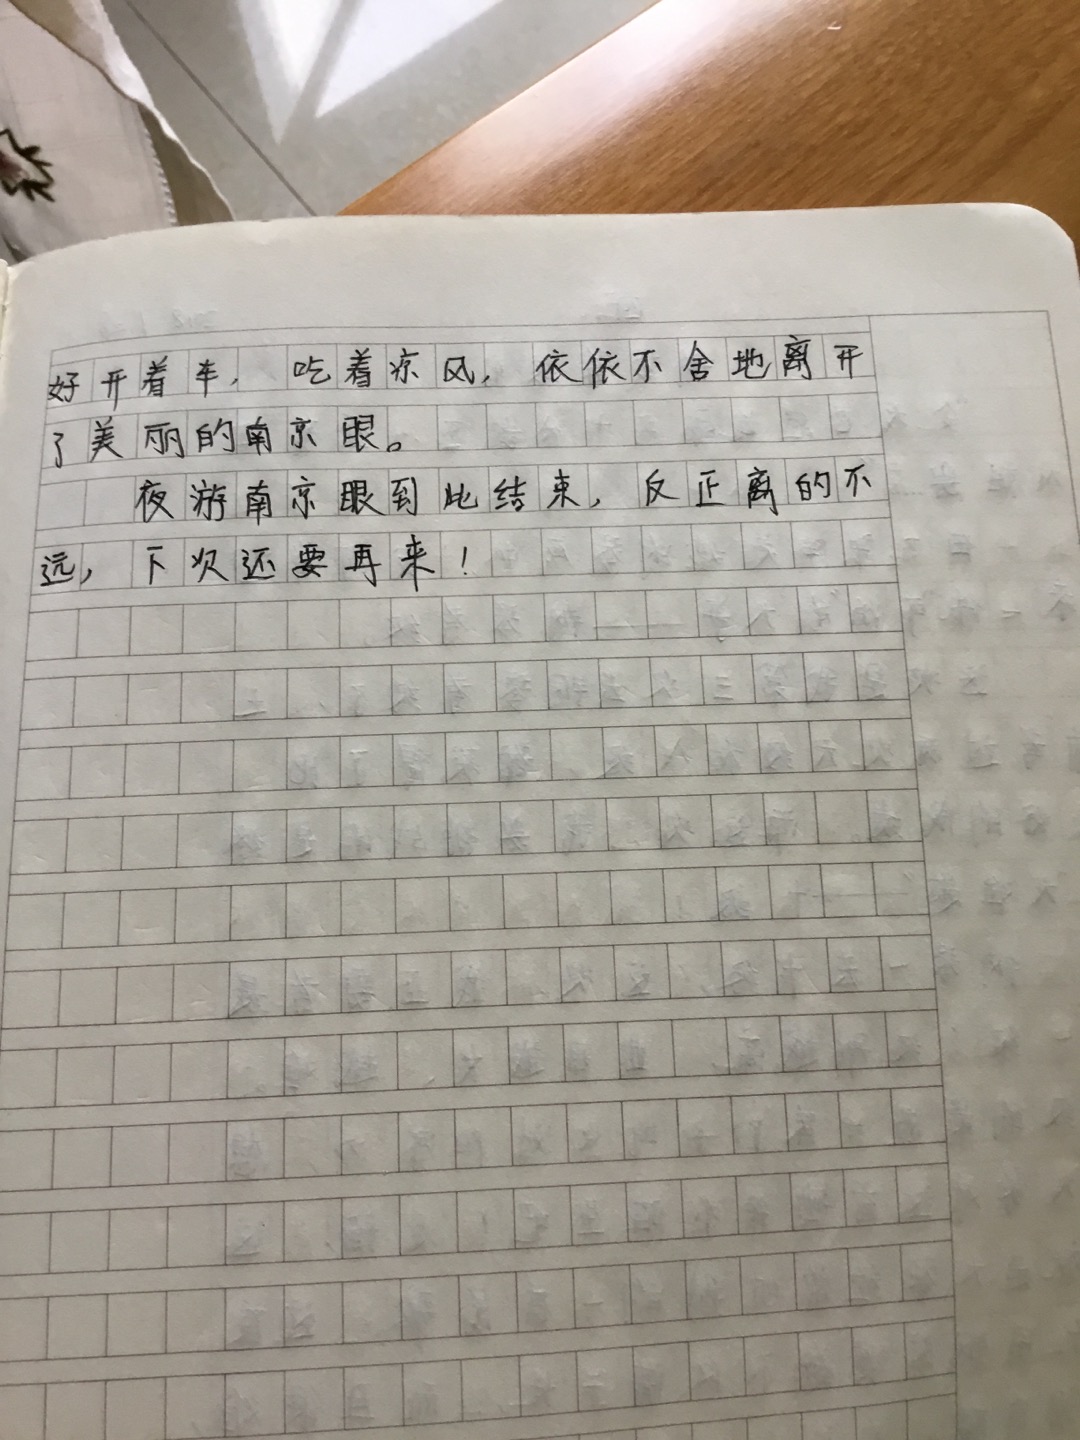 好开着车，吃着凉风，依依不舍地离开
了美丽的南京眼。
夜游南京眼到此结束，反正离的不
远，下次还要再来！